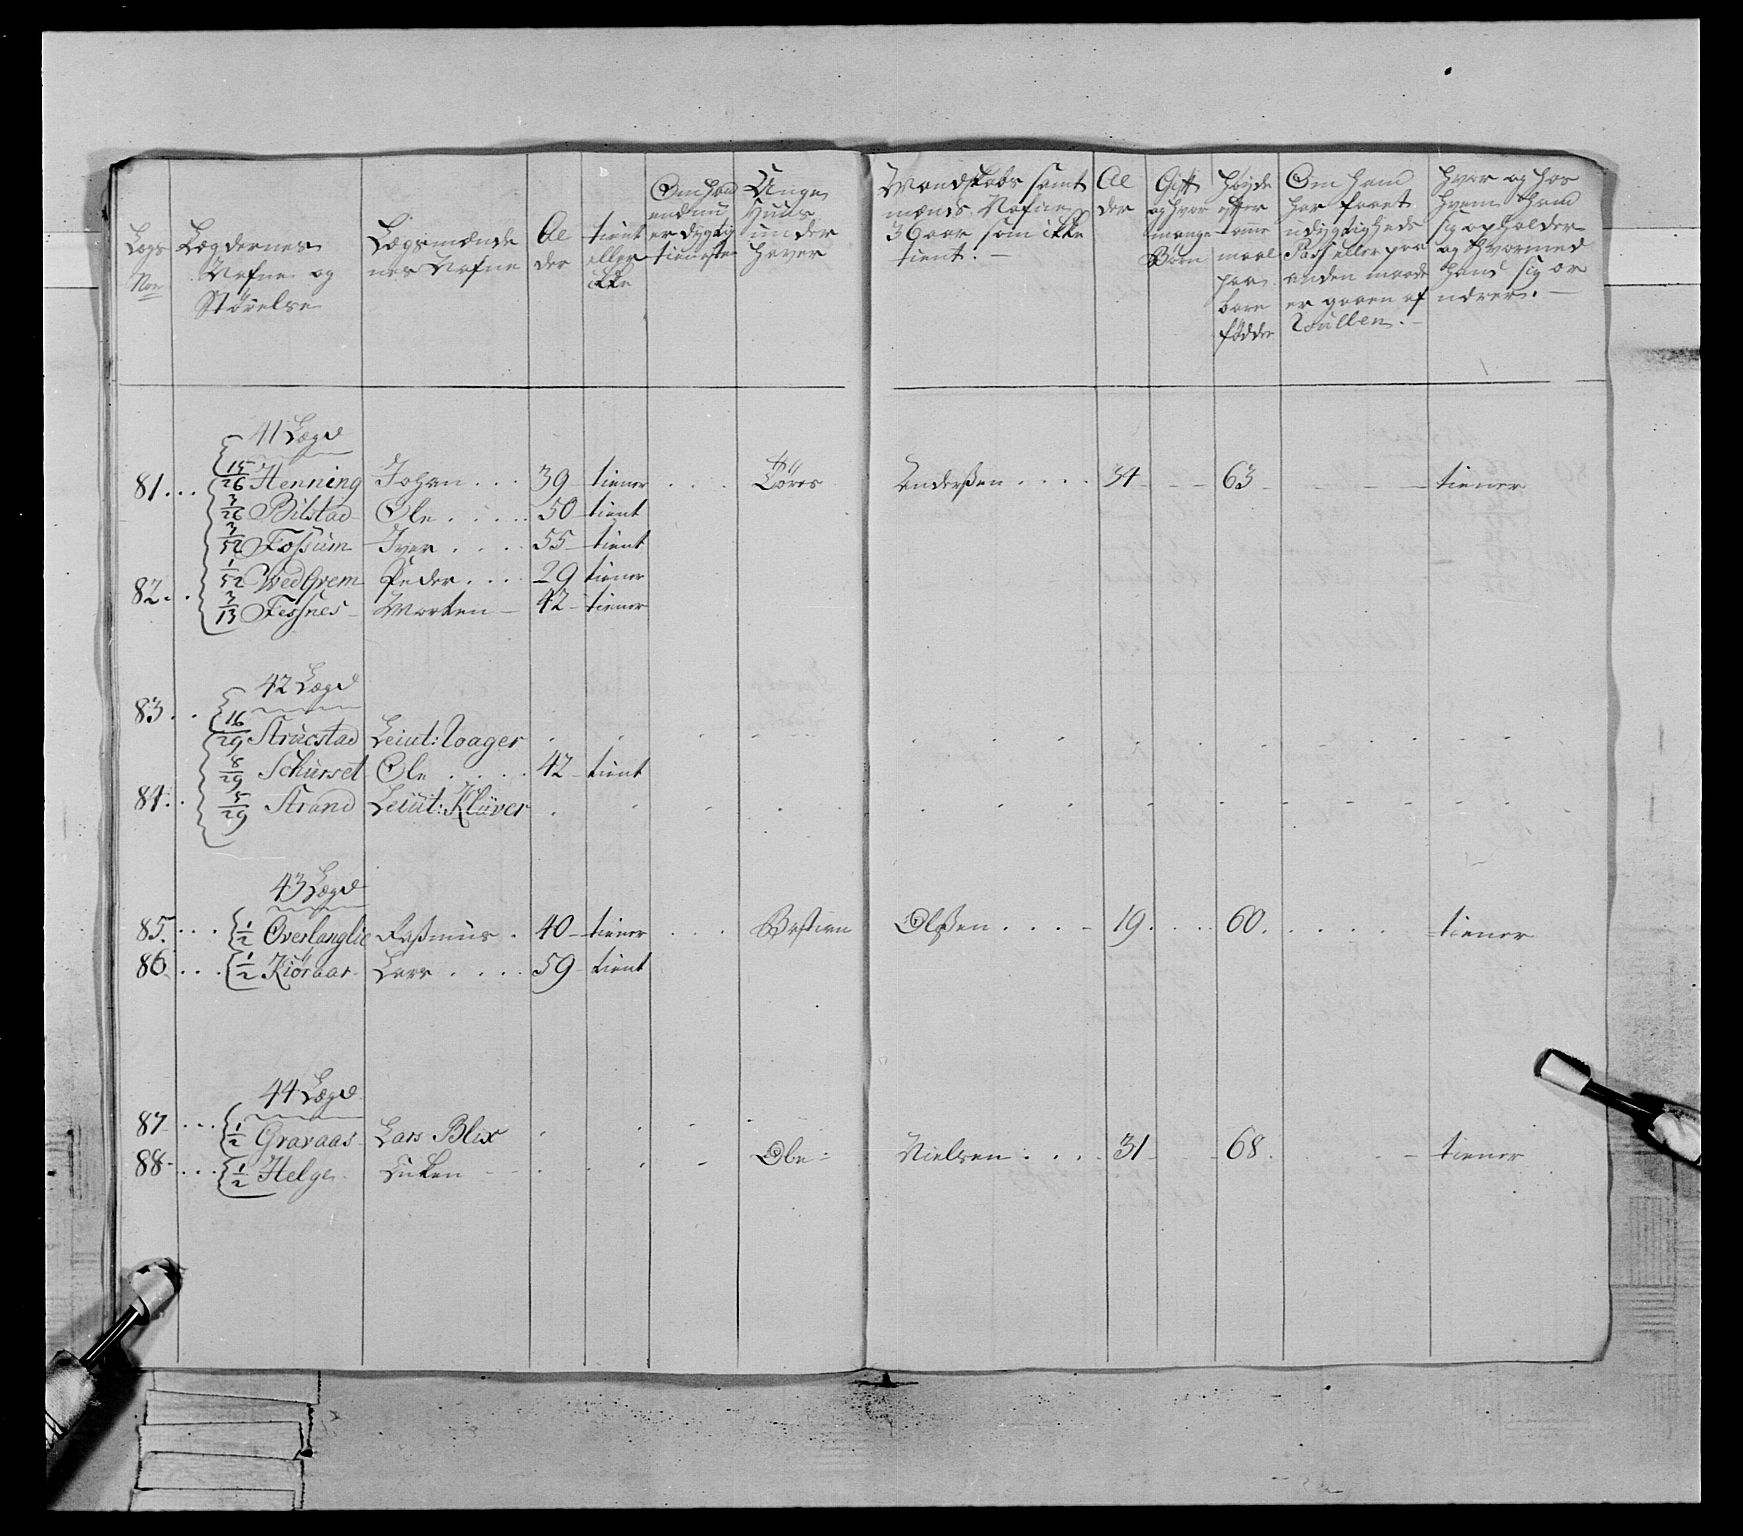 Lægs Noe
Lægdernes Nafne og Størelse
Lægsmændenes Nafne
Alder
tient eller ikke
Om hand endnu er dygtig tieniste
Unge Huus under haver
Mandskabs samt mænds Nafne 36 aar som ikke tient. —
Alder
Gift og hvor mange Børn
Høyde efter tomme maal paa bare fødder
Om hand har faaet udygtigheds Pass eller paa anden maade er gaaen af Rullen. —
Hvor og hos hvem hand sig opholder og hvormed hand sig ernærer. —
41 Lægd
81... 15/26 Henning Johan... 39 tiener.... Tores Anderßen.... 34 - - 63 - - - tiener
3/26 Bilstad Ole..... 50 tient
3/52 Fossum Iver.... 55 tient
82.. 1/52 Wedhvem Peder.... 29 tiener
3/13 Fessnes Morten - 42 - tiener
42 Lægd
83.. 16/29 Struestad Leiut: Roager
8/29 Schurset Ole.... 42 - tient
84.. 5/29 Strand Leiut: Klüver
43 Lægd
85... 1/2 Overlanglie Raßmus. 40 - tiener.... Bastian Olßen.... 19.... 60...... tiener
86.... 1/2 Kioraas Lars.... 59 - tient
44 Lægd
87... 1/2 Gravaas Lars Blix
88-... 1/2 Helge Enken - - Ole - Nielsen.... 31 - - 68. - tiener